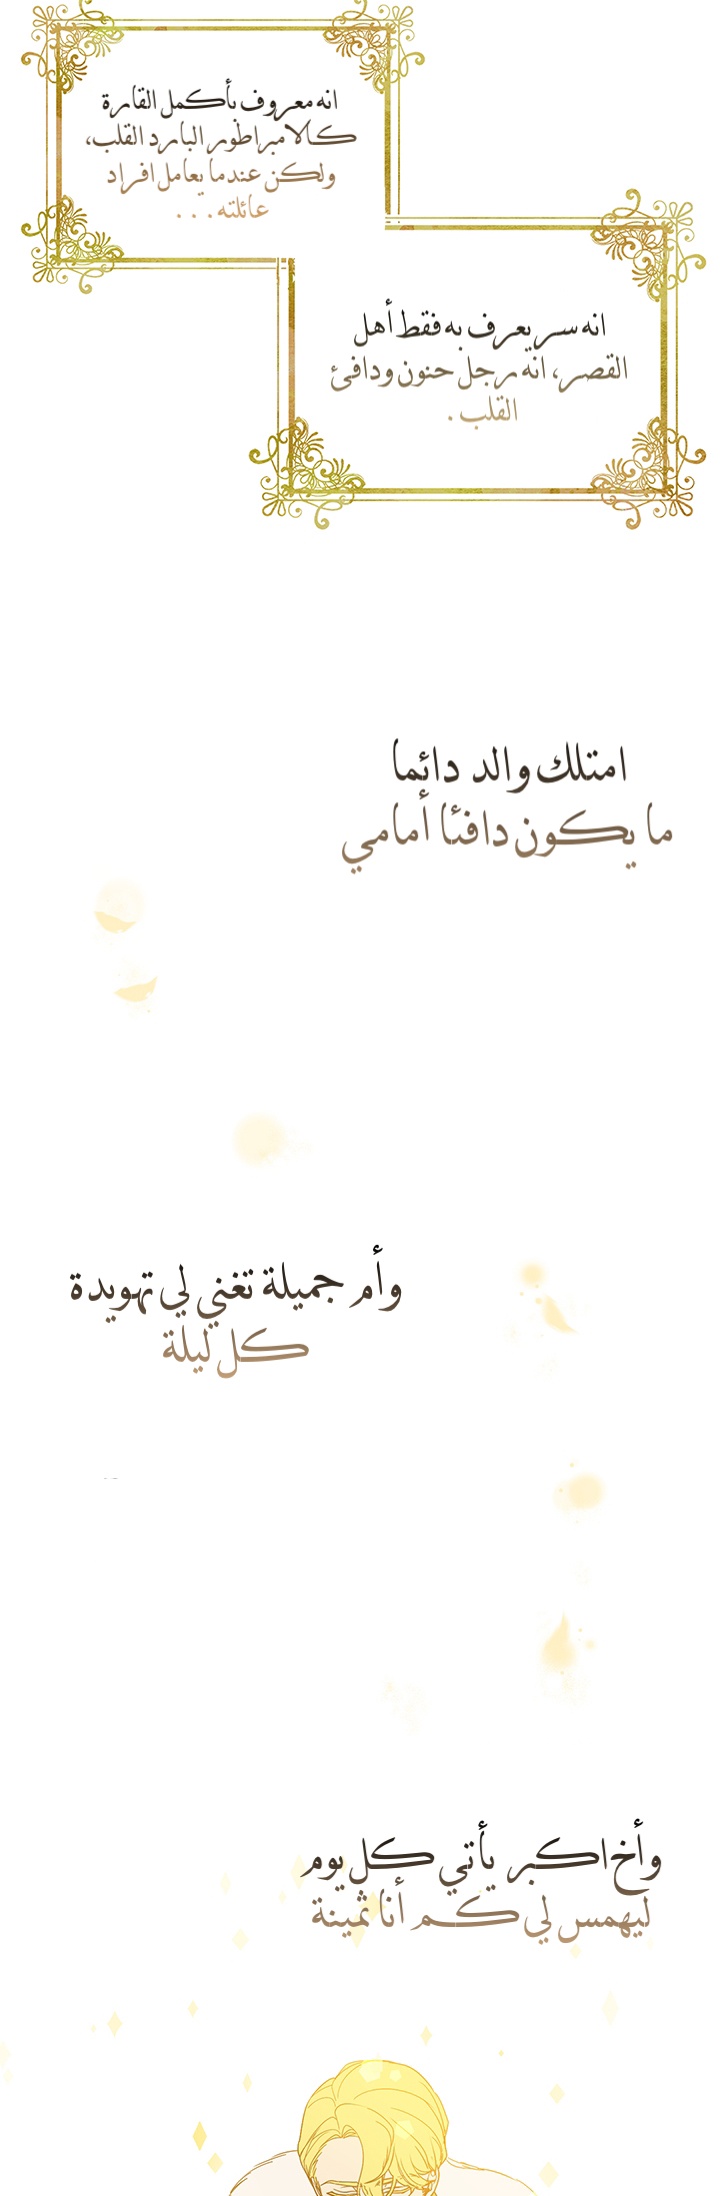 انه معروف بأكمل القارة
كالامبراطور البارد القلب،
ولكن عندما يعامل افراد
عائلته...
انه سر يعرف به فقط أهل
القصر، انه رجل حنون ودافئ
القلب.
امتلك والد دائما
ما يكون دافئا أمامي
وأم جميلة تغني لي تهويدة
كل ليلة
وأخ اكبر يأتي كل يوم
ليهمس لي كم أنا ثمينة